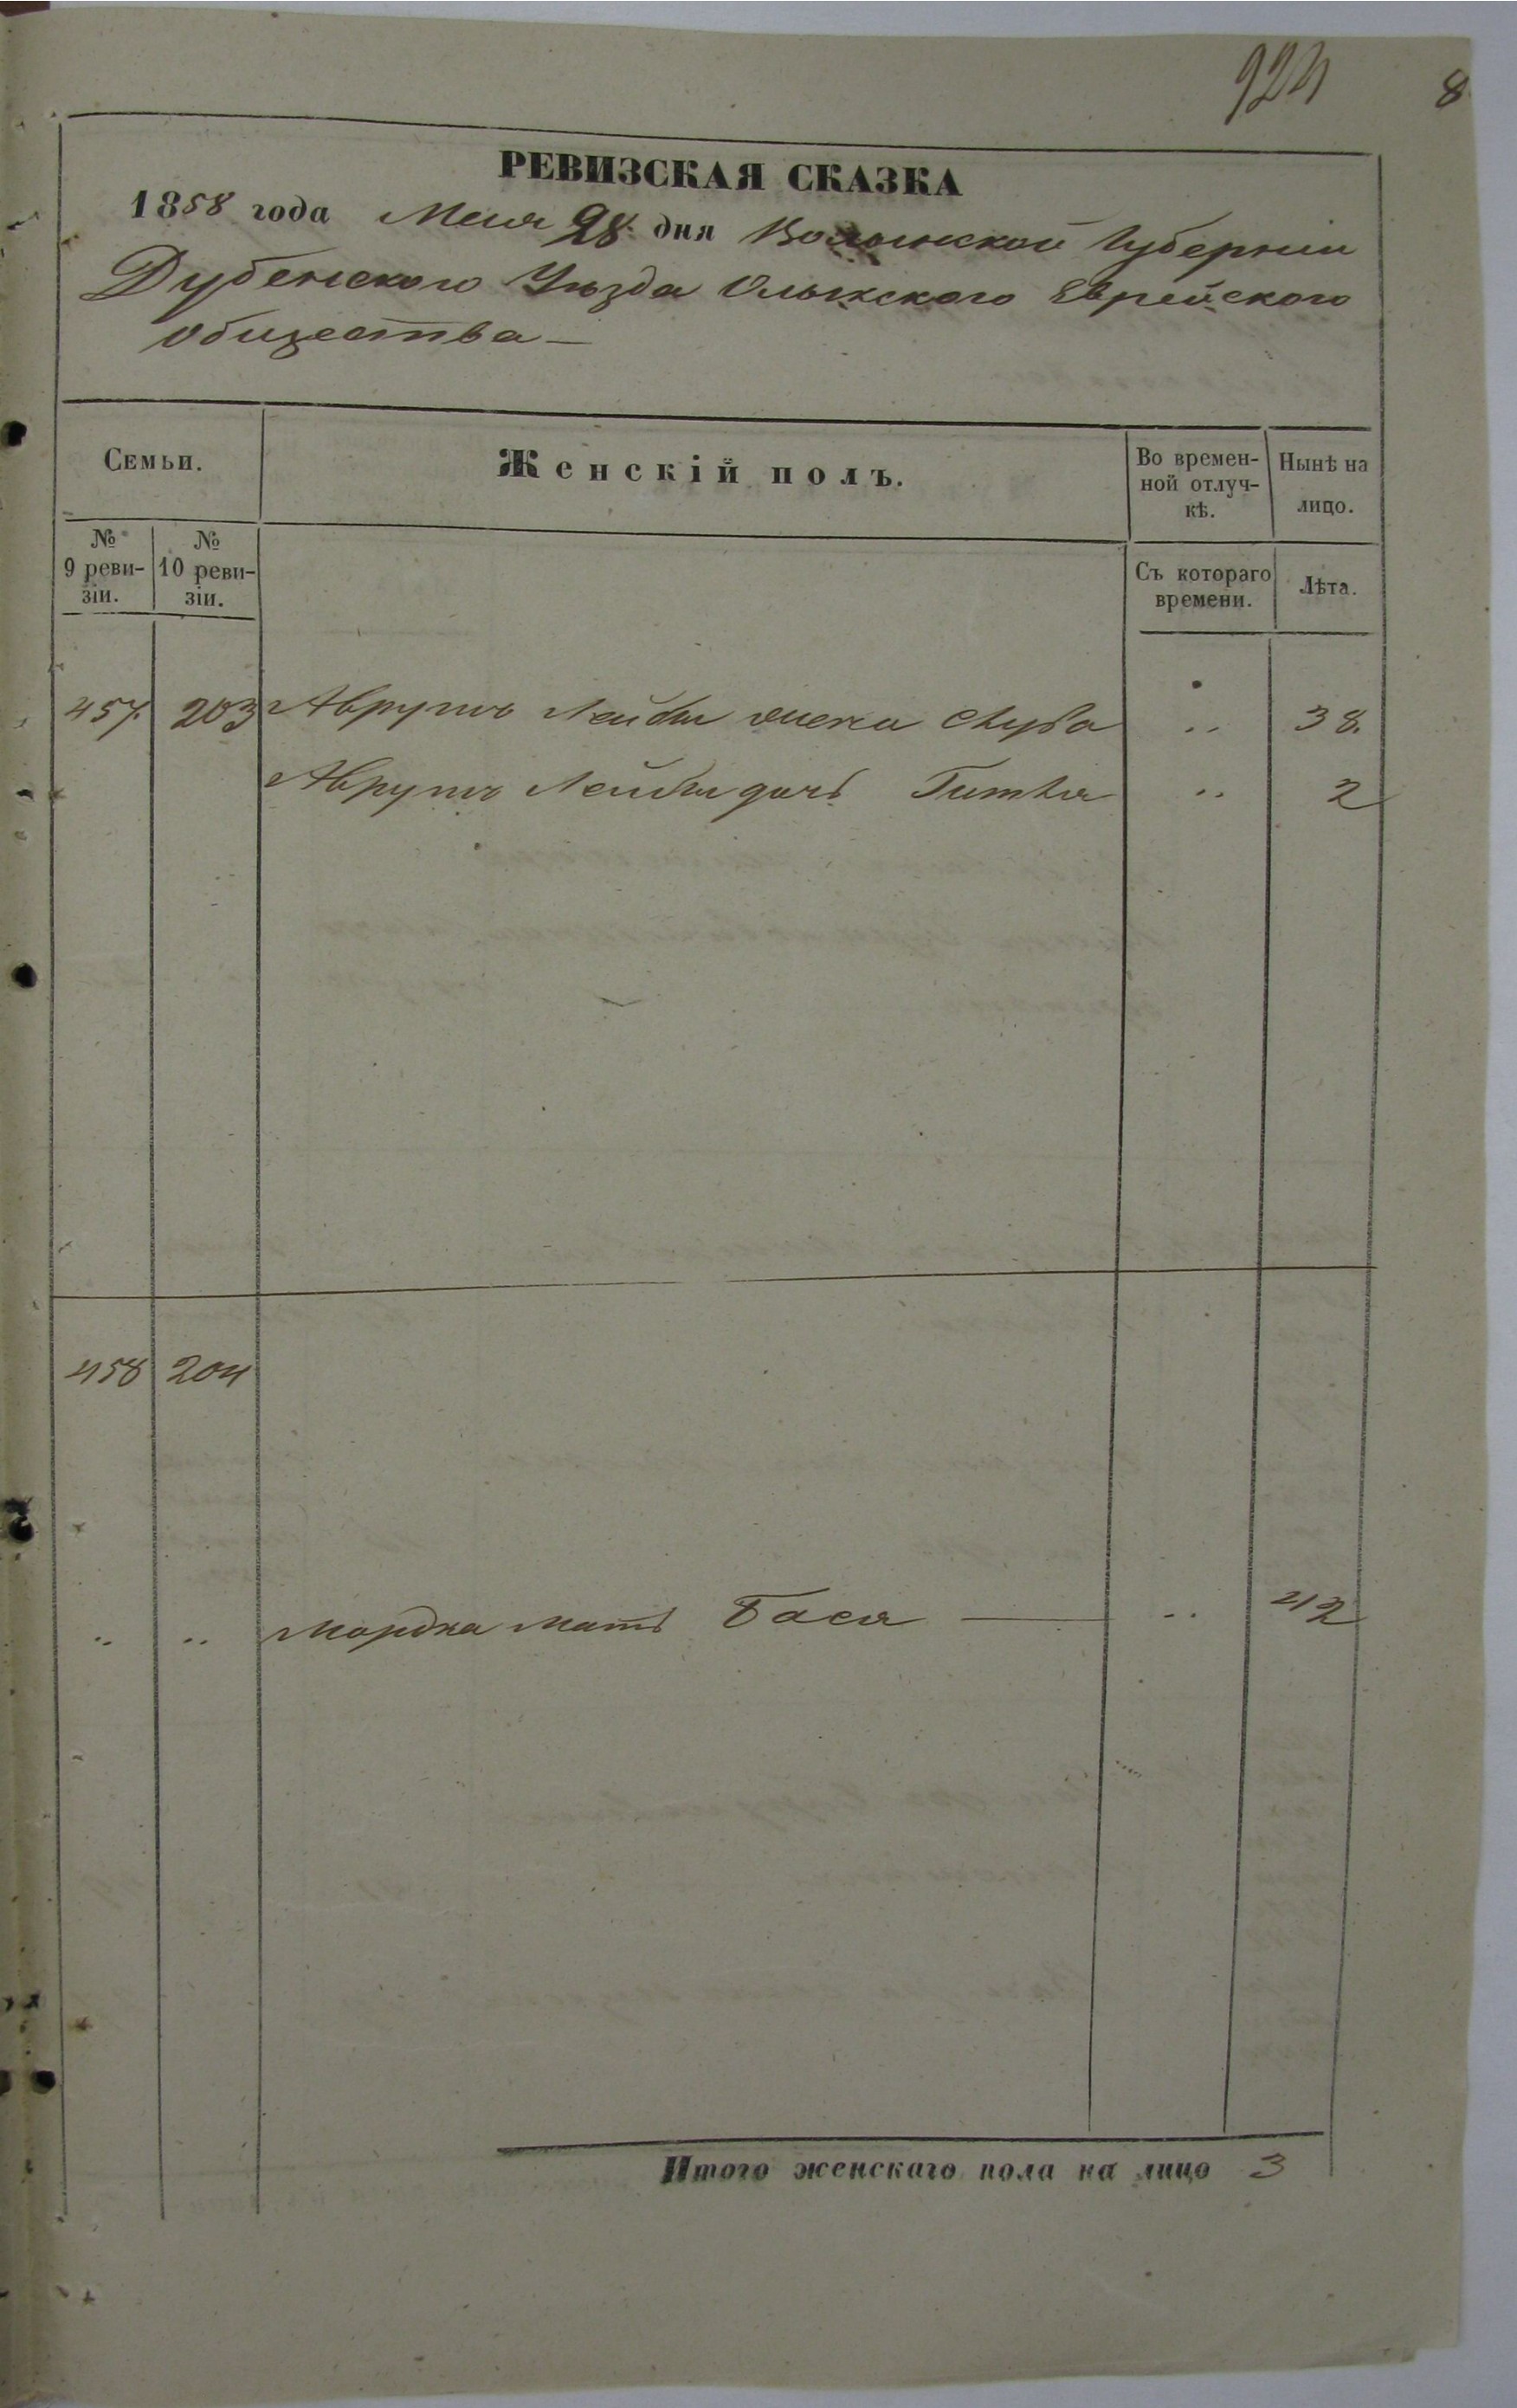 924 8
РЕВИЗСКАЯ СКАЗКА
1858 года Мая 28 дня Волынской Губерніи
Дубенского Уѣзда Олыкского Еврейского
общества —
Семьи.
Женскій полъ.
Во времен-
ной отлуч-
кѣ.
Нынѣ на
лицо.
№
9 реви-
зіи.
№
10 реви-
зіи.
Съ котораго
времени.
Лѣта.
457. 203 Аврумъ Лейбы жена Хуба .. 38.
Аврумъ Лейбы дочь Гитля .. 2
458 204
.. .. Мордка мать Бася — .. 42
Итого женскаго пола на лицо 3